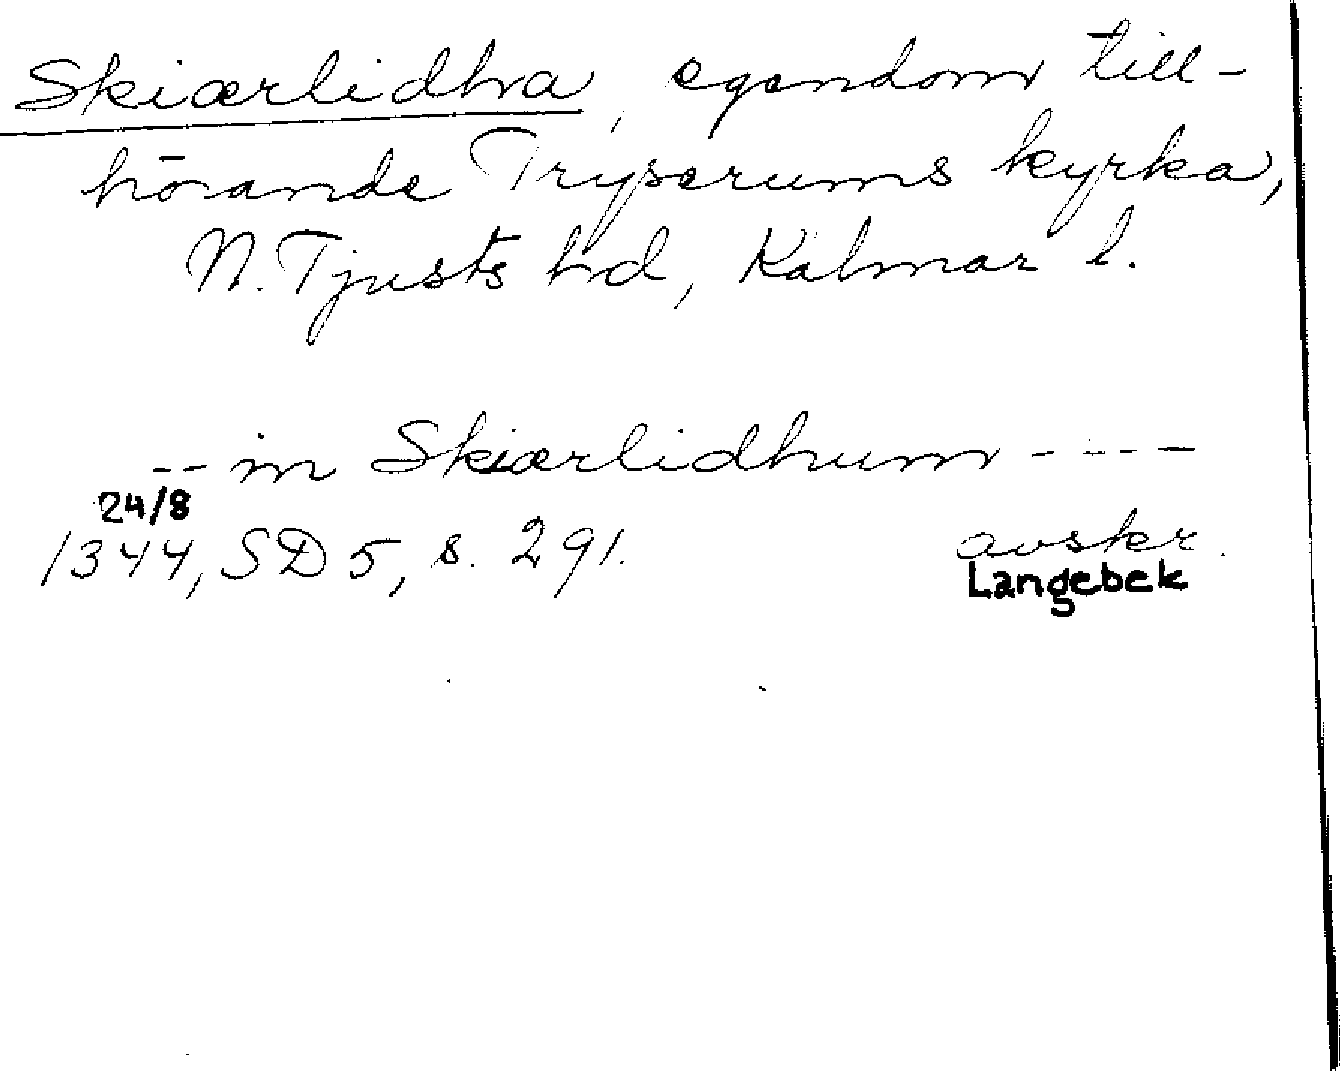 Skiærlidha, egendom till-
hörande Tryserums kyrka,
N. Tjusts hd, Kalmar l.
-- in Skiærlidhum ----
24/8
1344, SD 5, s. 291. avskr.
Langebek